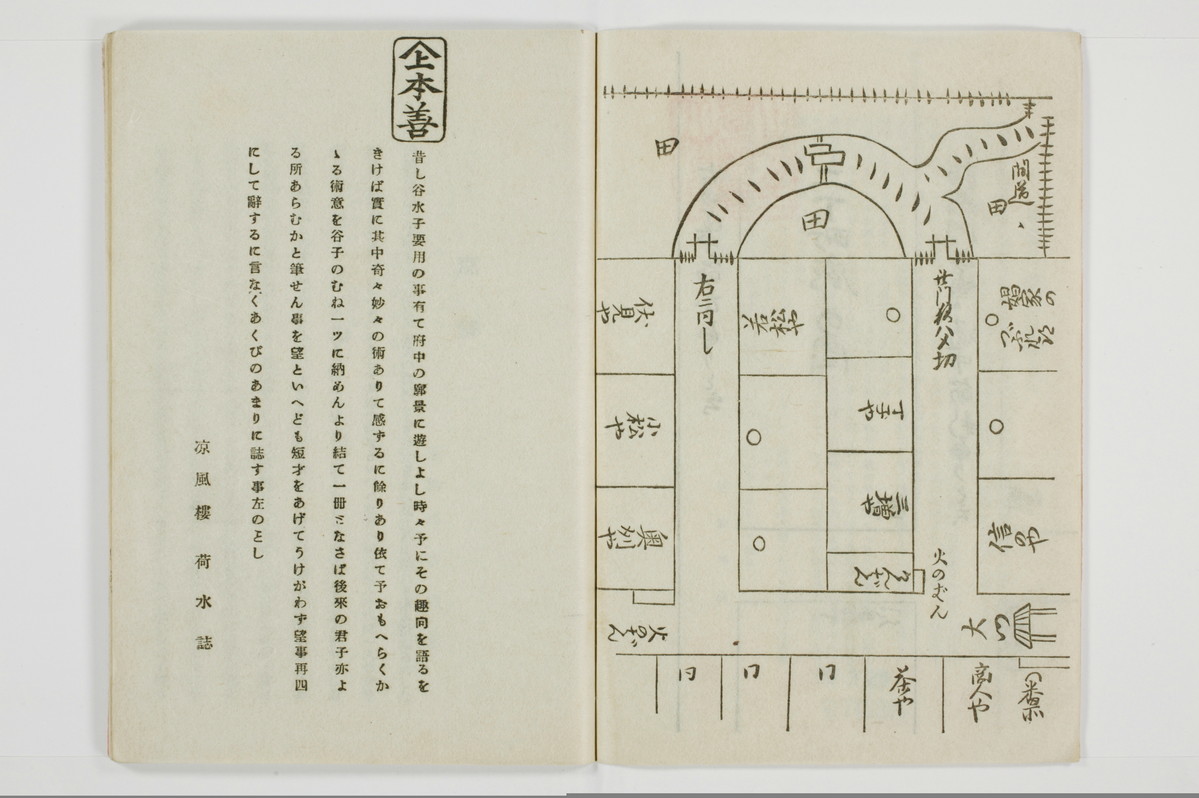 間道
田
田
田
娼家の
此門夜八ツ切
右ニ同し
伏見や
小松や
奥州や
若松や
丁子や
信のや
火のばん
大門
商人や
茶や
同
同
同
本善
昔し谷水子要用の事有て府中の廓景に遊しよし時々予にその趣向を語るを
きけば實に其中奇々妙々の術ありて感ずるに餘りあり依て予おもへらくか
ゝる術意を谷子のむね一ツに納めんより結て一冊となさば後來の君子亦よ
る所あらむかと筆せん事を望といへども短才をあげてうけがわず望事再四
にして辭するに言なくあくびのあまりに誌す事左のとし
凉風樓 荷水誌